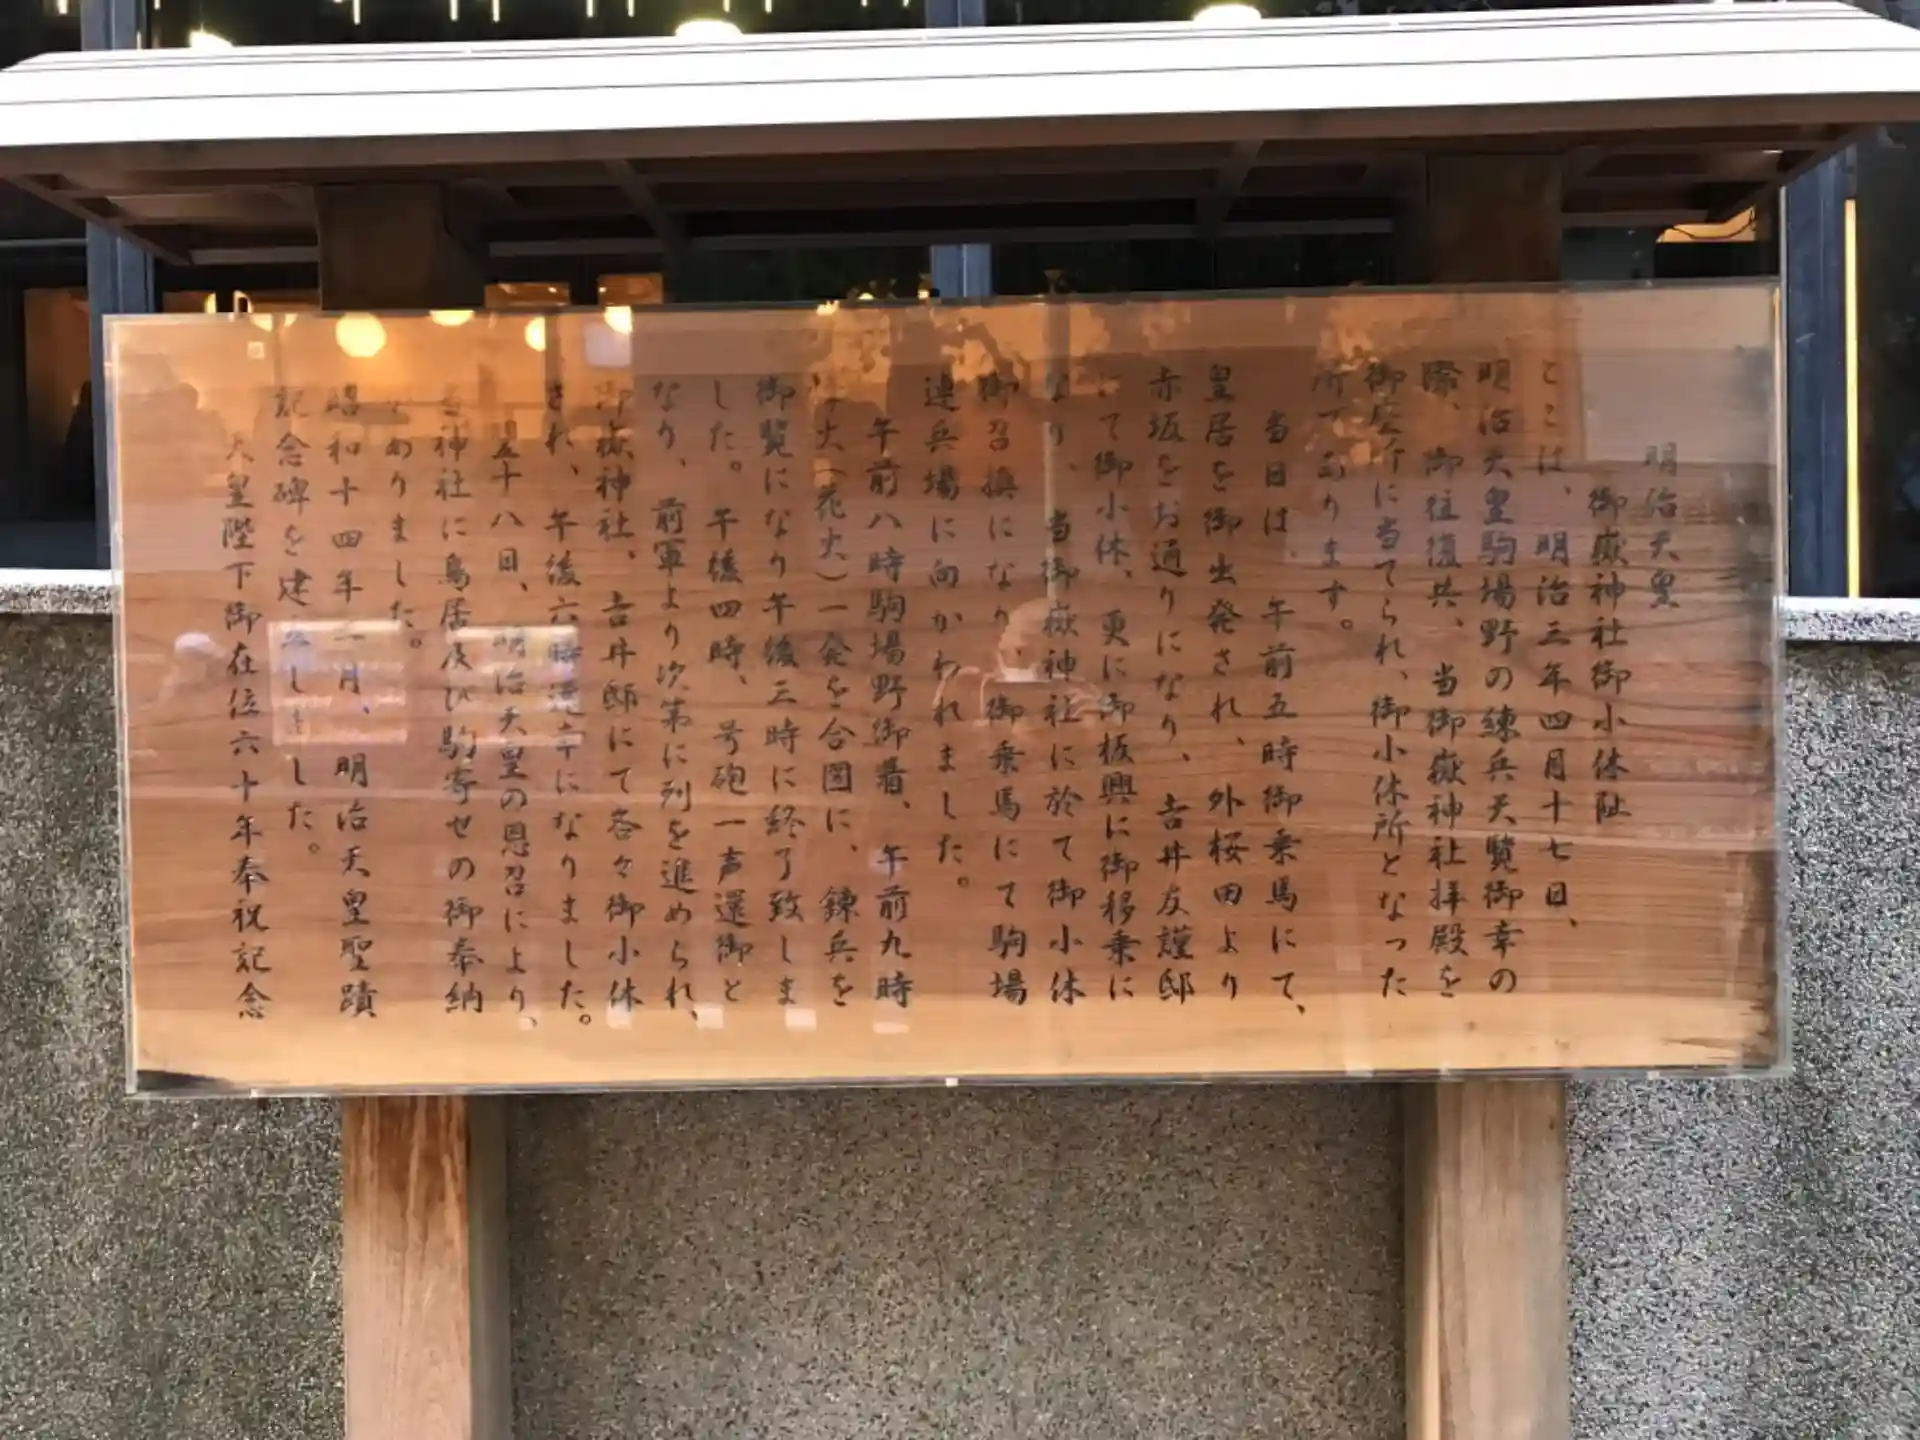 明治天皇
御嶽神社御小休阯
ここは、明治三年四月十七日、
明治天皇駒場野の練兵天覧御幸の
際、御往復共、当御嶽神社拝殿を
御座所に当てられ、御小休所となった
所であります。
当日は、午前五時御乗馬にて、
皇居を御出発され、外桜田より
赤坂をお通りになり、吉井友謹邸
にて御小休、更に御板輿に御移乗に
なり、当御嶽神社に於て御小休
御召換になり、御乗馬にて駒場
連兵場に向かわれました。
午前八時駒場野御着、午前九時
火(花火)一発を合図に、錬兵を
御覧になり午後三時に終了致しま
した。午後四時、号砲一声還御と
なり、前軍より次第に列を進められ、
御嶽神社、吉井邸にて各々御小休
され、午後六時還幸になりました。
五十八日、明治天皇の恩召により、
神社に鳥居及び駒寄せの御奉納
がありました。
昭和十四年二月、明治天皇聖蹟
記念碑を建立しました。
天皇陛下御在位六十年奉祝記念